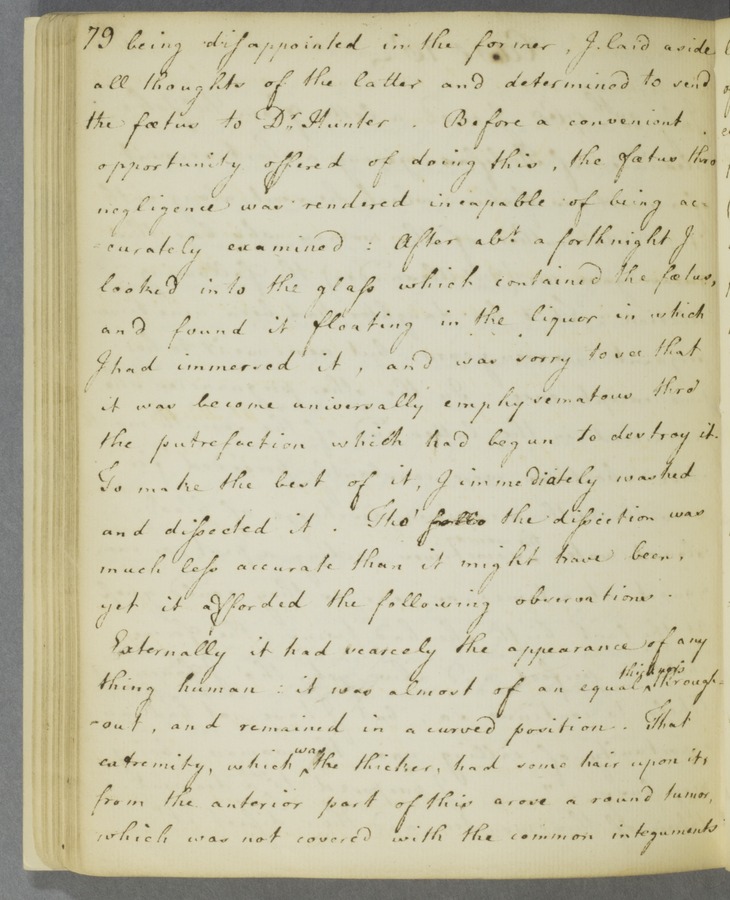 79 being disappointed in the former, I laid aside
all thoughts of the latter and determined to send
the fœtus to Dr. Hunter. Before a convenient
opportunity offered of doing this, the fœtus thro
negligence was rendered incapable of being ac-
-curately examined : After abt. a forthnight I
looked into the glass which contained the fœtus,
and found it floating in the liquor in which
I had immersed it, and was sorry to see that
it was become universally emphysematous thro
the putrefaction which had begun to destroy it.
To make the best of it, I immediately washed
and dissected it. Tho' the dissection was
much less accurate than it might have been,
yet it afforded the following observations.
Externally it had scarcely the appearance of any
thing human : it was almost of an equal thickness through-
-out, and remained in a curved position. That
extremity, which was the thicker, had some hair upon it;
from the anterior part of this arose a round tumor,
which was not covered with the common integuments